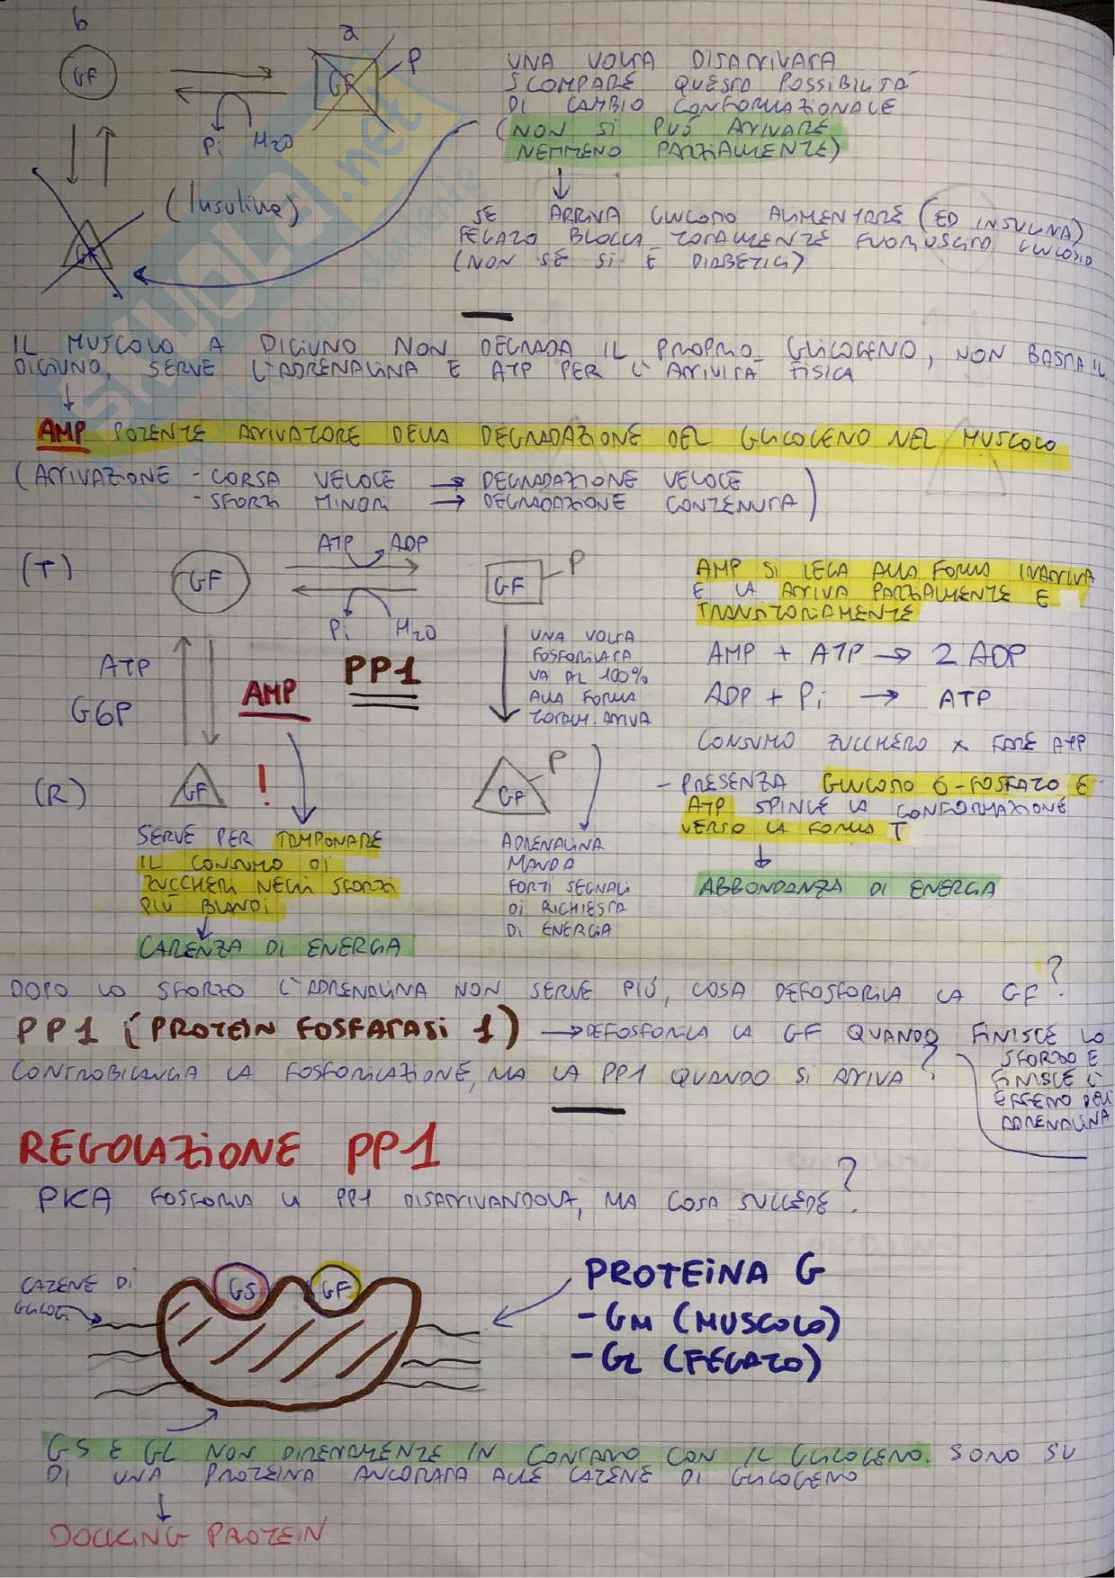 b
a
GF
GF
P
Pi
H2O
UNA VOLTA DISATTIVATA
SCOMPARE QUESTA POSSIBILITÀ
DI CAMBIO CONFORMAZIONALE
(NON SI PUÓ ATTIVARE
NEMMENO PARZIALMENTE)
(Insulina)
GF
SE ARRIVA GLUCOSIO ALIMENTARE (ED INSULINA)
FEGATO BLOCCA TOTALMENTE FUORIUSCITA GLUCOSIO
(NON SE SI È DIABETICI)
SKUOLA.net
IL MUSCOLO A DIGIUNO NON DEGRADA IL PROPRIO GLICOGENO, NON BASTA IL
DIGIUNO, SERVE L'ADRENALINA E ATP PER L'ATTIVITÀ FISICA
AMP POTENTE ATTIVATORE DELLA DEGRADAZIONE DEL GLICOGENO NEL MUSCOLO
(ATTIVAZIONE - CORSA VELOCE → DEGRADAZIONE VELOCE
- SFORZI MINORI → DEGRADAZIONE CONTENUTA)
(T)
GF
ATP
ADP
Pi
H2O
GF
P
PP1
ATP
G6P
AMP
UNA VOLTA
FOSFORILATA
VA AL 100%
ALLA FORMA
TOTALM. ATTIVA
AMP SI LEGA ALLA FORMA INATTIVA
E LA ATTIVA PARZIALMENTE E
TRANSITORIAMENTE
AMP + ATP → 2 ADP
ADP + Pi → ATP
CONSUMO ZUCCHERO x FARE ATP
(R)
GF
!
GF
P
- PRESENZA GLUCOSIO 6-FOSFATO E
ATP SPINGE LA CONFORMAZIONE
VERSO LA FORMA T
ABBONDANZA DI ENERGIA
SERVE PER TAMPONARE
IL CONSUMO DI
ZUCCHERI NEGLI SFORZI
PIÙ BLANDI
CARENZA DI ENERGIA
ADRENALINA
MANDA
FORTI SEGNALI
DI RICHIESTA
DI ENERGIA
DOPO LO SFORZO L'ADRENALINA NON SERVE PIÚ, COSA DEFOSFORILA LA GF?
PP1 (PROTEIN FOSFATASI 1) → DEFOSFORILA LA GF QUANDO FINISCE LO
SFORZO E
FINISCE L'
EFFETTO DELL'
ADRENALINA
CONTROBILANCIA LA FOSFORILAZIONE, MA LA PP1 QUANDO SI ATTIVA?
REGOLAZIONE PP1
PKA FOSFORILA LA PP1 DISATTIVANDOLA, MA COSA SUCCEDE?
CATENE DI
GLICOG.
GS
GF
PROTEINA G
- GM (MUSCOLO)
- GL (FEGATO)
GS E GL NON DIRETTAMENTE IN CONTATTO CON IL GLICOGENO. SONO SU
DI UNA PROTEINA ANCORATA ALLE CATENE DI GLICOGENO
DOCKING PROTEIN